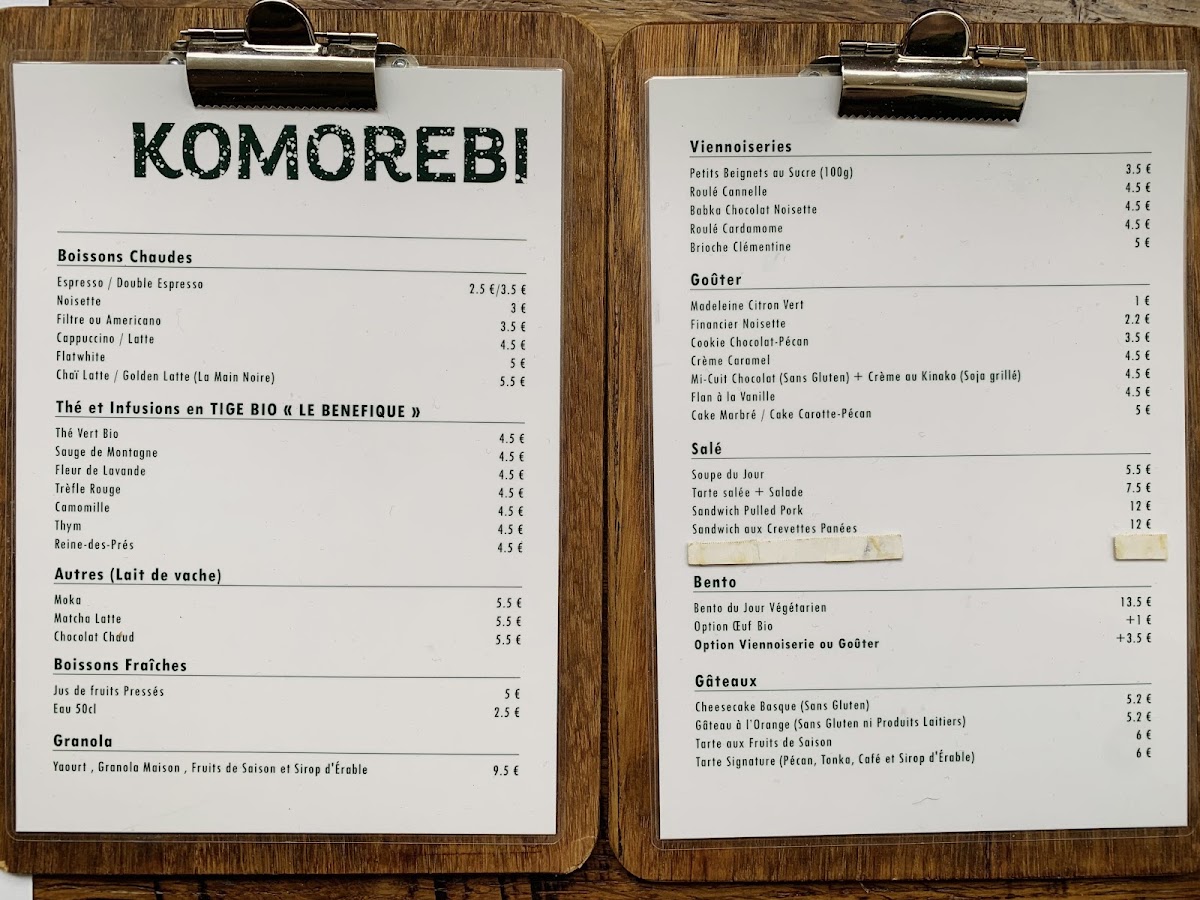 KOMOREBI
Boissons Chaudes
Espresso / Double Espresso 2.5 €/3.5 €
Noisette 3 €
Filtre ou Americano 3.5 €
Cappuccino / Latte 4.5 €
Flatwhite 5 €
Chaï Latte / Golden Latte (La Main Noire) 5.5 €
Thé et Infusions en TIGE BIO « LE BENEFIQUE »
Thé Vert Bio 4.5 €
Sauge de Montagne 4.5 €
Fleur de Lavande 4.5 €
Trèfle Rouge 4.5 €
Camomille 4.5 €
Thym 4.5 €
Reine-des-Prés 4.5 €
Autres (Lait de vache)
Moka 5.5 €
Matcha Latte 5.5 €
Chocolat Chaud 5.5 €
Boissons Fraîches
Jus de fruits Pressés 5 €
Eau 50cl 2.5 €
Granola
Yaourt , Granola Maison , Fruits de Saison et Sirop d'Érable 9.5 €
Viennoiseries
Petits Beignets au Sucre (100g) 3.5 €
Roulé Cannelle 4.5 €
Babka Chocolat Noisette 4.5 €
Roulé Cardamome 4.5 €
Brioche Clémentine 5 €
Goûter
Madeleine Citron Vert 1 €
Financier Noisette 2.2 €
Cookie Chocolat-Pécan 3.5 €
Crème Caramel 4.5 €
Mi-Cuit Chocolat (Sans Gluten) + Crème au Kinako (Soja grillé) 4.5 €
Flan à la Vanille 4.5 €
Cake Marbré / Cake Carotte-Pécan 5 €
Salé
Soupe du Jour 5.5 €
Tarte salée + Salade 7.5 €
Sandwich Pulled Pork 12 €
Sandwich aux Crevettes Panées 12 €
Bento
Bento du Jour Végétarien 13.5 €
Option Œuf Bio +1 €
Option Viennoiserie ou Goûter +3.5 €
Gâteaux
Cheesecake Basque (Sans Gluten) 5.2 €
Gâteau à l'Orange (Sans Gluten ni Produits Laitiers) 5.2 €
Tarte aux Fruits de Saison 6 €
Tarte Signature (Pécan, Tonka, Café et Sirop d'Érable) 6 €